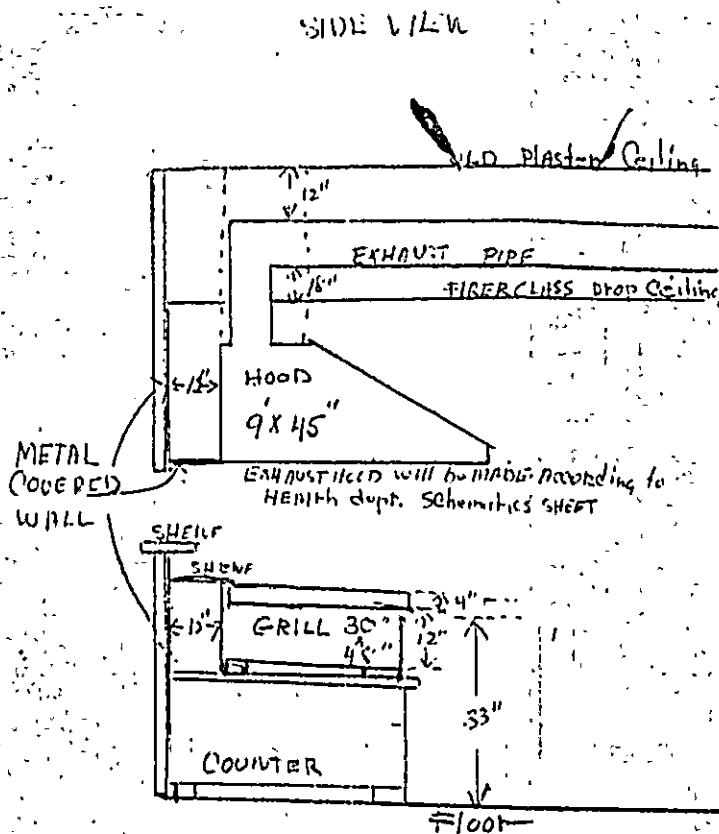 SIDE VIEW
OLD PLASTER Ceiling
12"
EXHAUST PIPE
18"
FIBERCLASS Drop Ceiling
HOOD
9' X 45"
METAL
COVERED
WALL
EXHAUST HOOD will be MADE According to
HEAlth dept. SChematics SHEET
SHELF
SHELF
4"
GRILL 30"
12"
33"
COUNTER
Floor